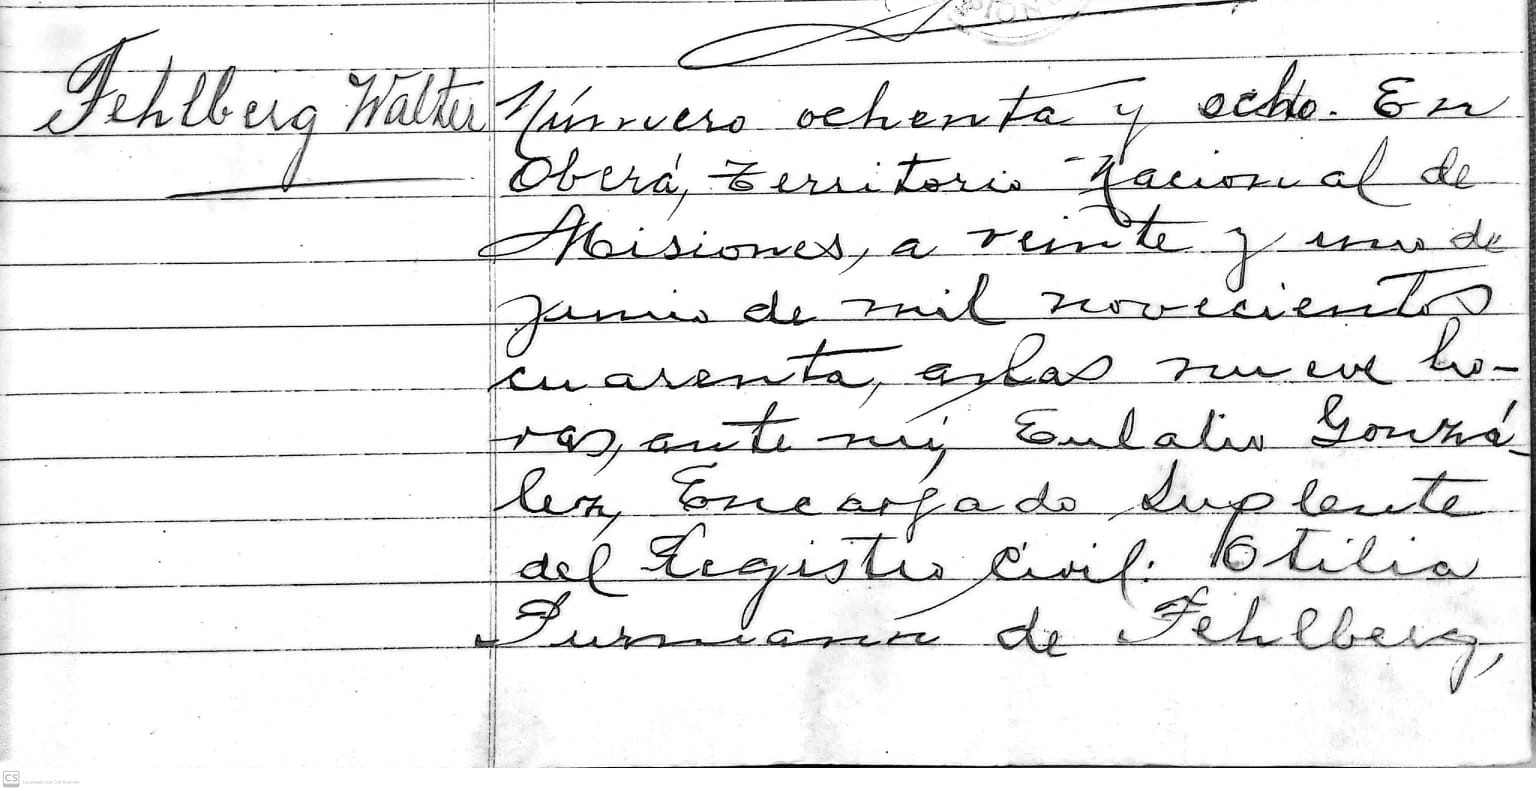 Fehlberg Walter
Número ochenta y ocho. En
Oberá, territorio Nacional de
Misiones, a veinte y uno de
junio de mil novecientos
cuarenta, a las nueve ho-
ras, ante mí, Eulalio Gonzá-
lez, Encargado Suplente
del Registro Civil: Otilia
de Fehlberg,
CS